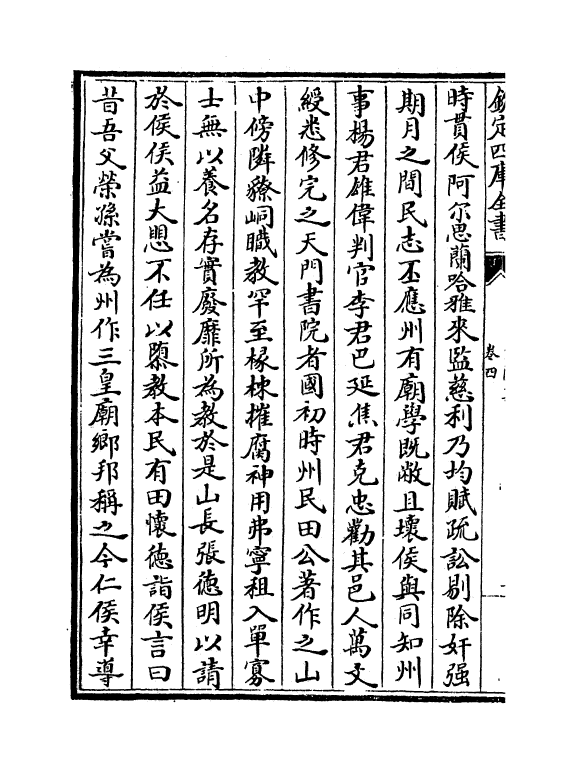 欽定四庫全書
卷四
時貫侯阿尔思蘭哈雅來監慈利乃均賦疏訟剔除奸强
期月之間民志丕應州有廟學既敝且壞侯與同知州
事楊君雄偉判官李君巴延焦君克忠勸其邑人萬文
綬悉修完之天門書院者國初時州民田公著作之山
中傍隣豂峒職教罕至椽栋摧腐神用弗寧租入單寡
士無以養名存實廢靡所為教於是山長張德明以請
於侯侯益大思不任以隳教本民有田懷德詣侯言曰
昔吾父榮孫嘗為州作三皇廟鄉邦稱之今仁侯幸導